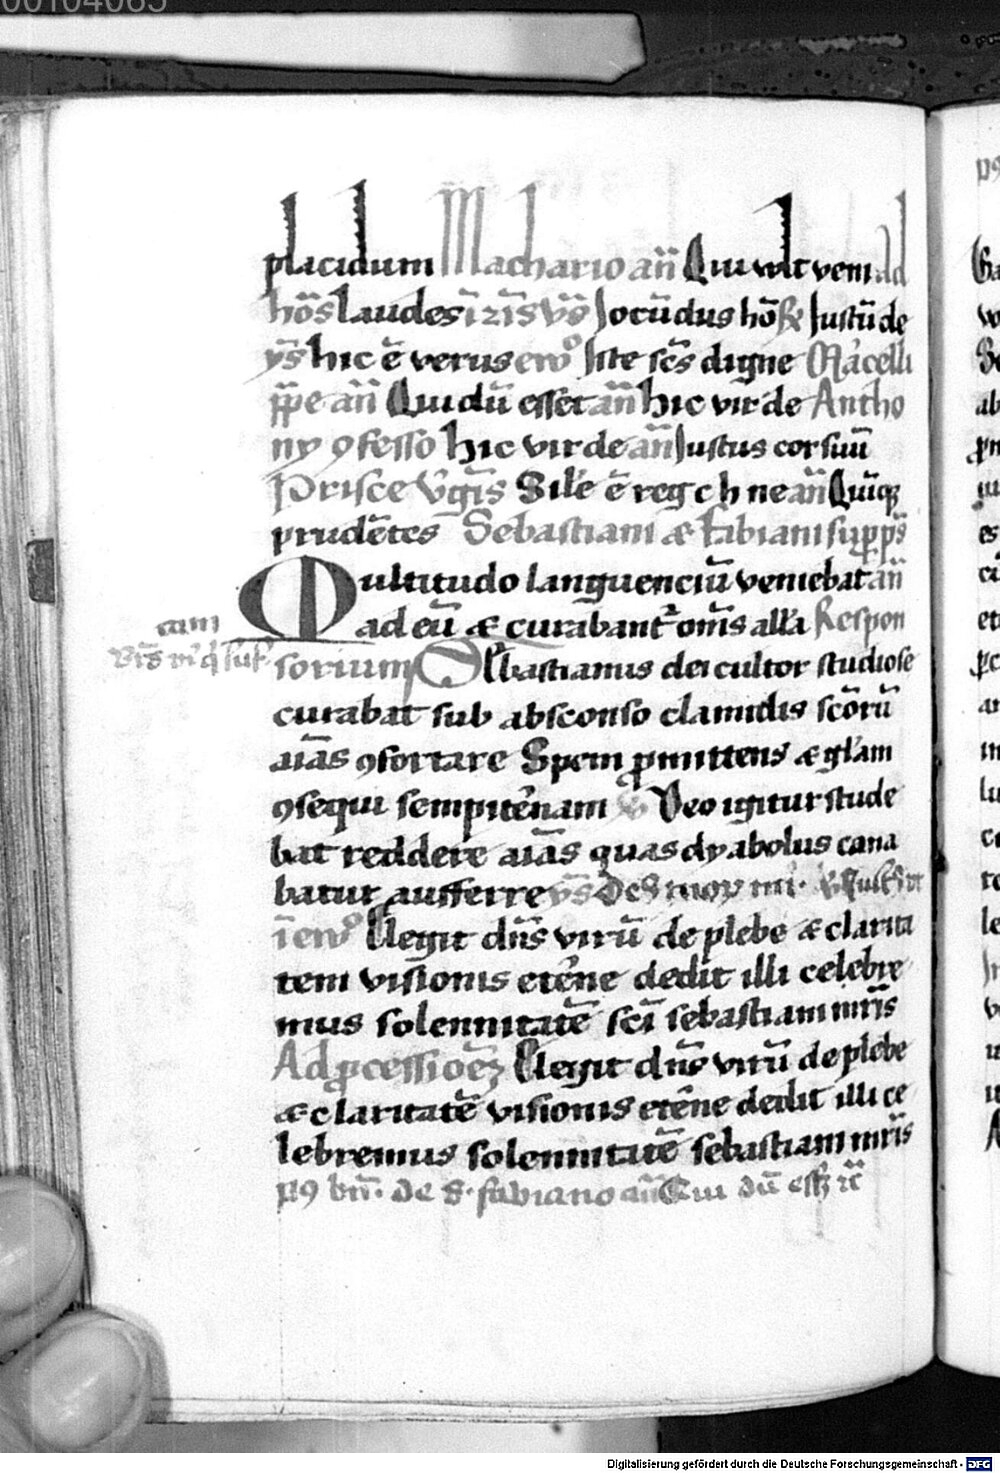 00104065
placidum Machario an̄ Qui vult veni Ad
hōs laudes īzīs vō Jocūdus hō Justū de
ys̄ hic ē verus ewͦ Iste scs̄ digne Marcelli
ppe an̄ Qui dū esset an̄ hic vir de Antho
ny ꝯfesso hic vir de an̄ Justus cor suū
Prisce v̄gīs Sile ē reg c h ne an̄ Quīqꝫ
prudētes Sebastiani æ Fabiani sup pp̄s
Multitudo languenciū veniebat an̄
ad eū æ curabant᷑ om̄s alla Respon
cam
sorium Sebastianus dei cultor studiose
curabat sub absconso clamidis scōrū
aīas ꝯfortare Spem ꝓmittens æ gl̄am
ꝯsequi sempitēnam Deo igitur stude
bat reddere aīas quas dyabolus cana
batur aufferre ys̄
ī ewͦ Elegit dn̄s virū de plebe æ clarita
tem visionis etēne dedit illi celebre
mus solennitatē sci sebastiani mr̄is
Ad ꝓcessioēꝫ Elegit dn̄s virū de plebe
æ claritatē visionis etēne dedit illi ce
lebremus solennitatē sebastiani mr̄is
pꝯ bn̄. de S. fabiano an̄ Cui dū essꝫ
Digitalisierung gefördert durch die Deutsche Forschungsgemeinschaft - DFG